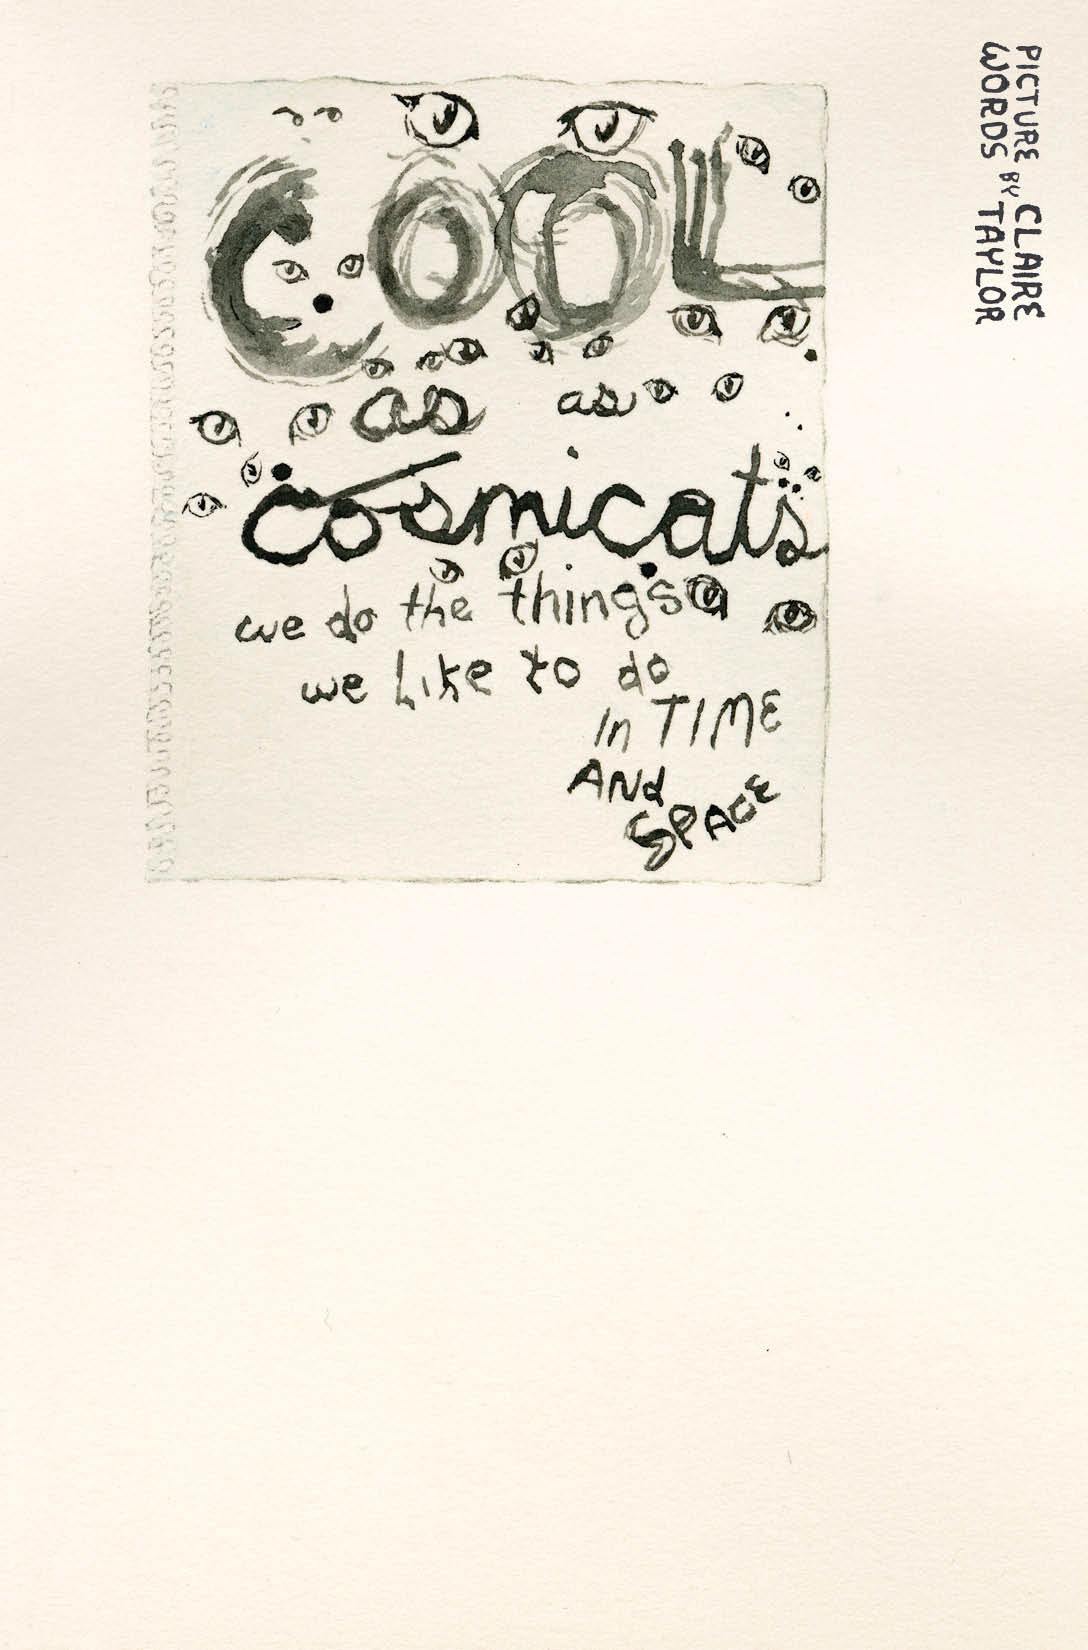 COOL
as as
cosmicats
we do the things
we like to do
In TIME
AND
SPACE
PICTURE BY CLAIRE
WORDS TAYLOR